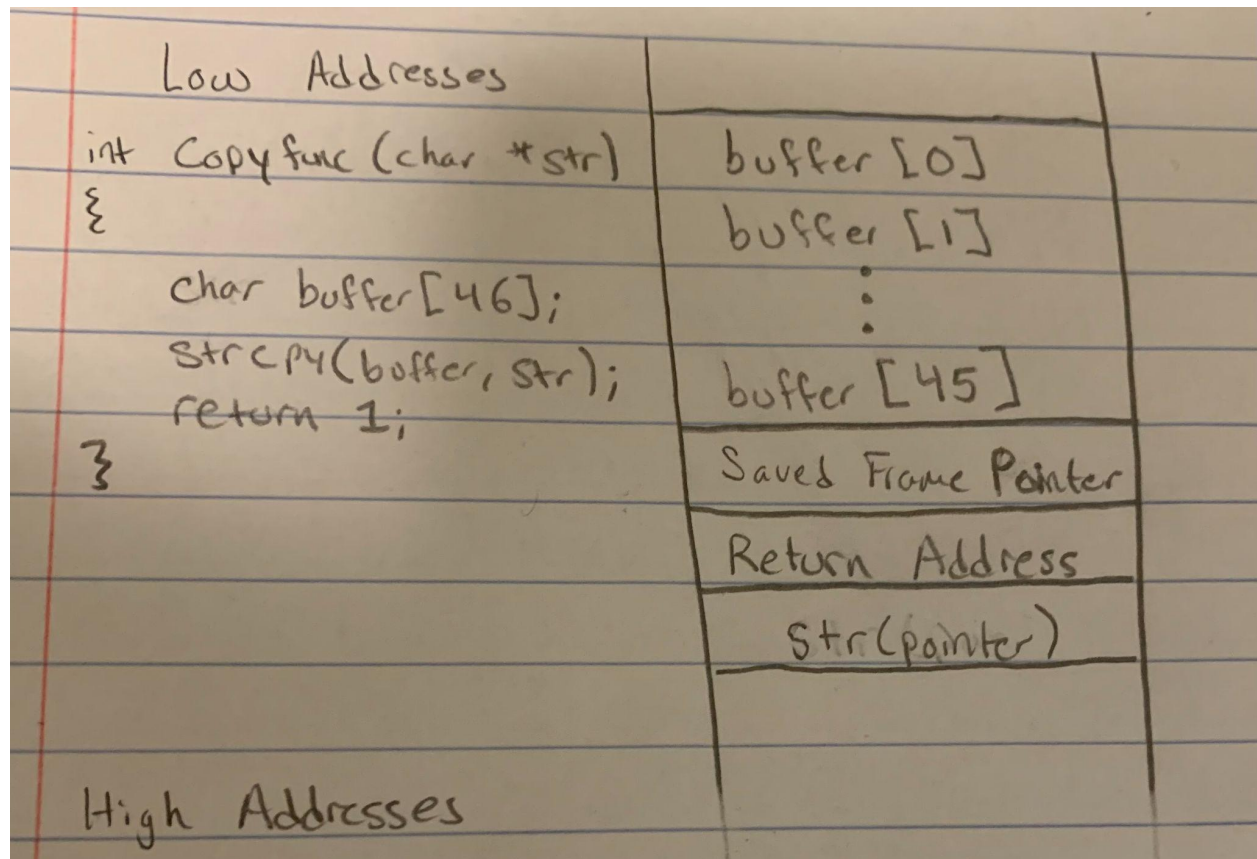 Low Addresses
int Copyfunc (char *str)
{
char buffer[46];
strcpy(buffer, str);
return 1;
}
High Addresses
buffer [0]
buffer [1]
⋮
buffer [45]
Saved Frame Pointer
Return Address
str(pointer)